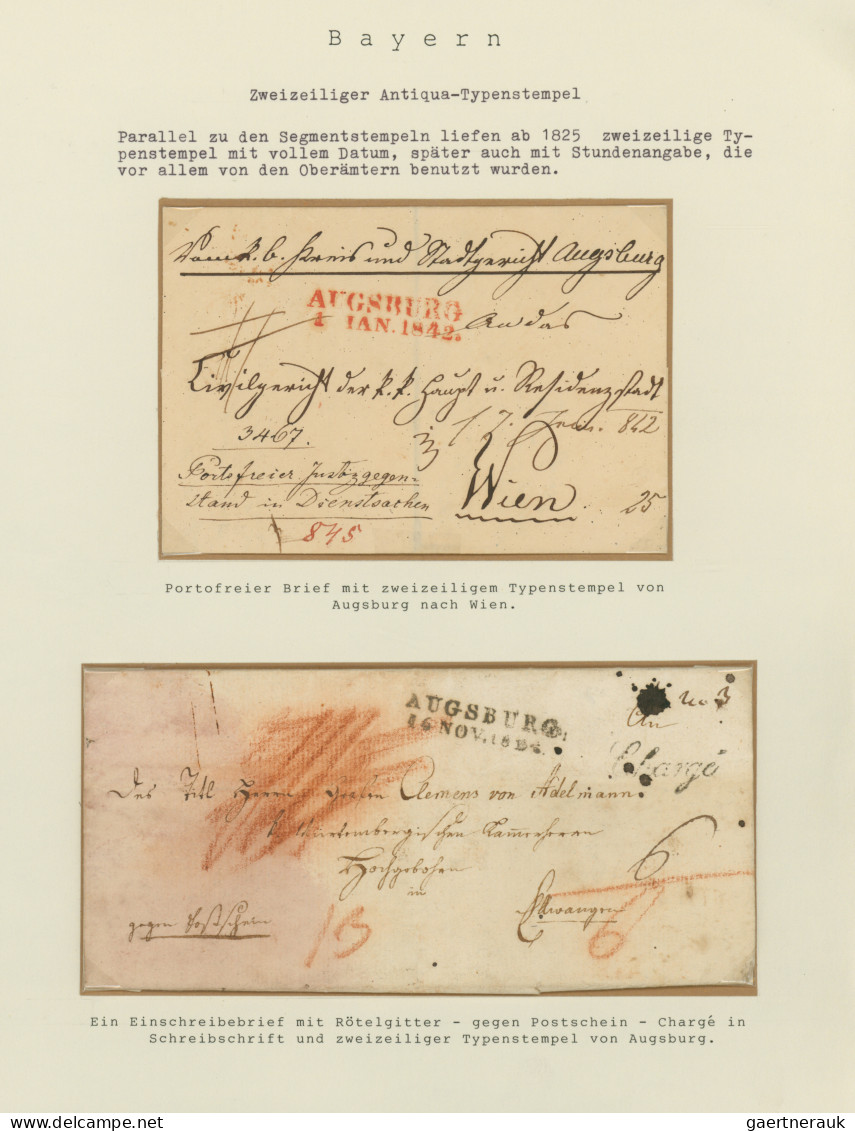 Bayern
Zweizeiliger Antiqua-Typenstempel
Parallel zu den Segmentstempeln liefen ab 1825 zweizeilige Ty-
penstempel mit vollem Datum, später auch mit Stundenangabe, die
vor allem von den Oberämtern benutzt wurden.
Vom k. b. Kreis und Stadtgericht Augsburg
AUGSBURG
1 IAN. 1842.
An das
Civilgericht der k. k. Haupt u. Residenzstadt
3467.
842
Portofreier Justizgegen=
stand in Dienstsachen
Wien
25
845
Portofreier Brief mit zweizeiligem Typenstempel von
Augsburg nach Wien.
AUGSBURG
16 NOV. 18
No 3
Chargé
Des Titl Herrn Grafen Clemens von Adelmann.
Würtembergischen Kammerherrn
Hochgebohrn
in
6
Ellwangen
gegen Postschein
13
6
Ein Einschreibebrief mit Rötelgitter - gegen Postschein - Chargé in
Schreibschrift und zweizeiliger Typenstempel von Augsburg.
www.delcampe.net
gaertnerauk